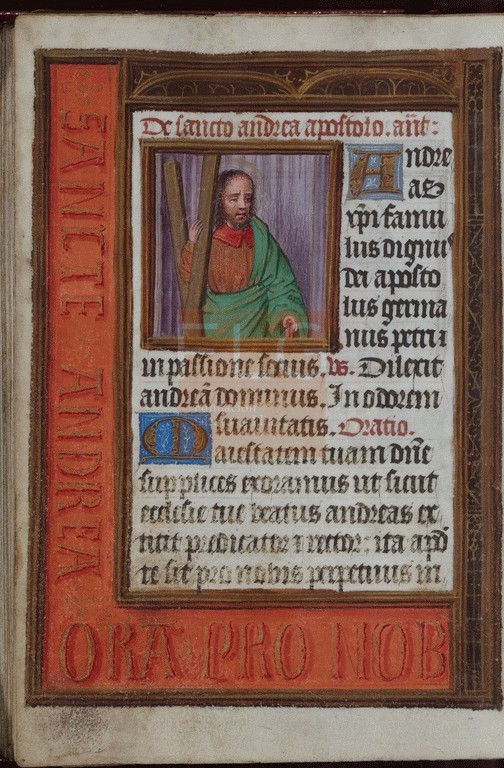 De sancto andrea apostolo. añt:
Andre
as
xp̄i famu
lus dignus
dei aposto
lus germa
nus petri ⁊
in passione socius. vs. Dilexit
andreā dominus. In odorem
suauitatis. Oratio.
Maiestatem tuam dn̄e
supplices exoramus ut sicut
ecclesie tue beatus andreas ex
titit predicator ⁊ rector: ita apđ
te sit pro nobis perpetuus in
SANCTE ANDREA
ORA PRO NOB